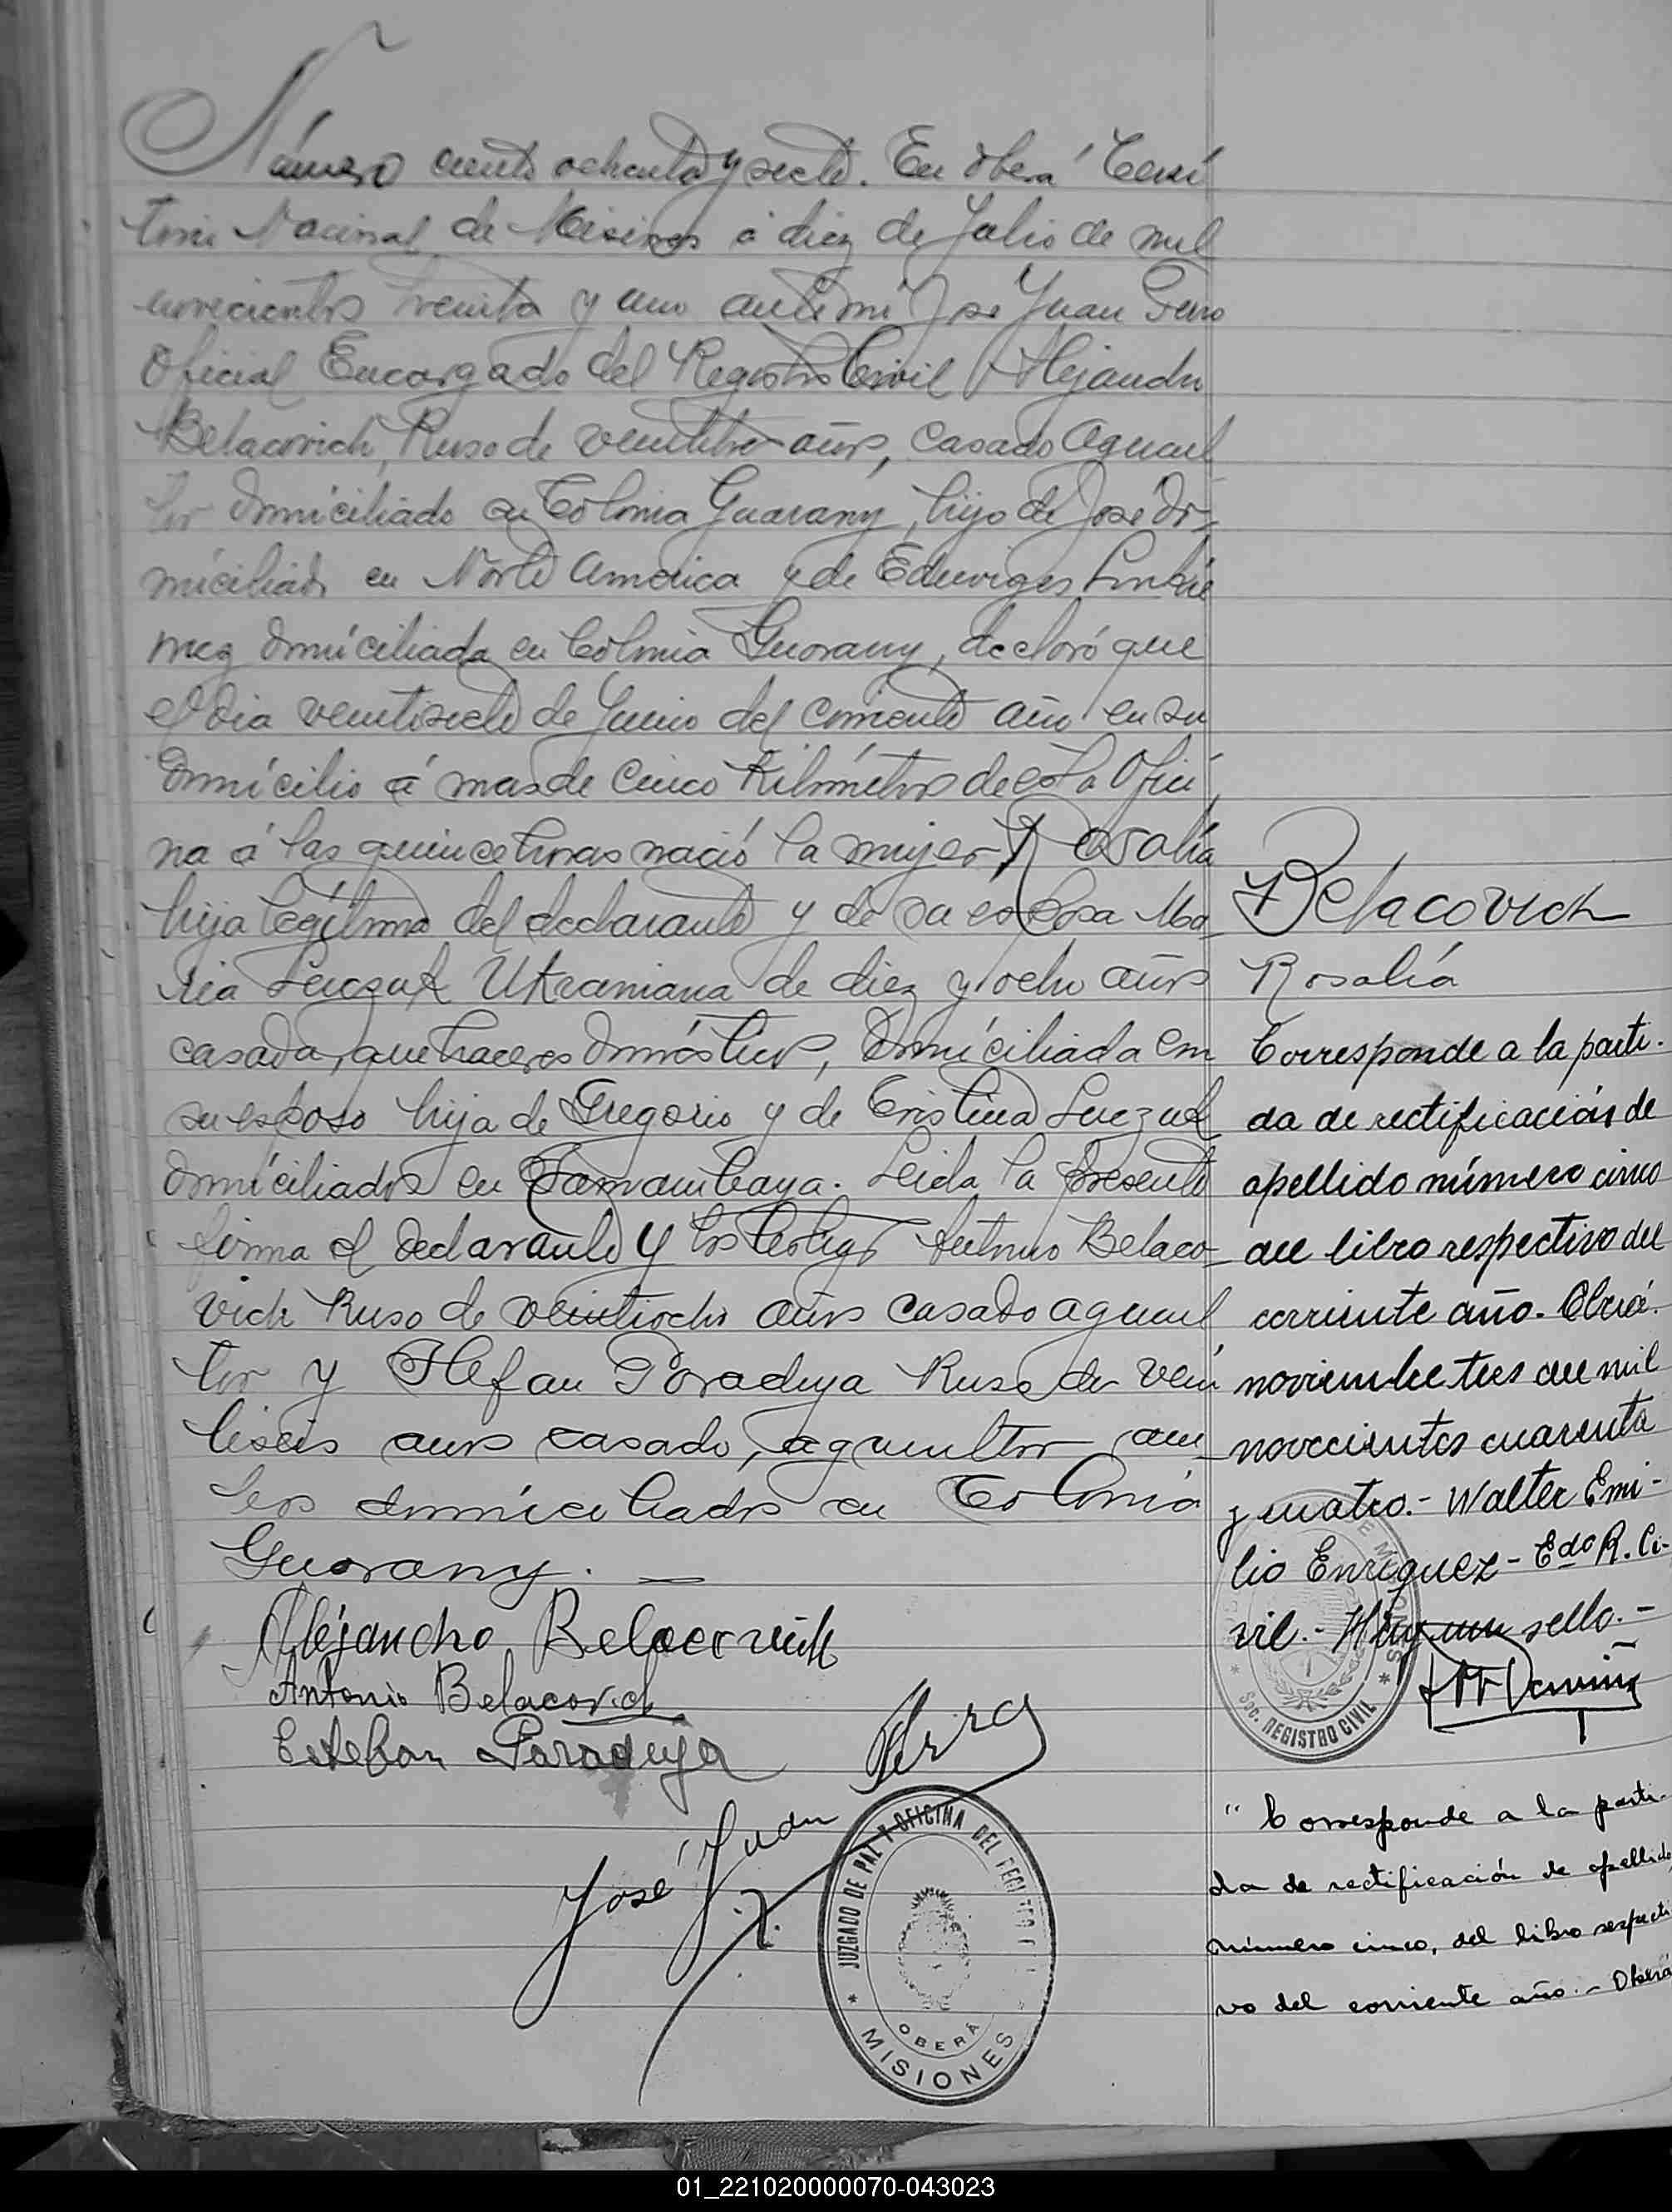 Número ciento ochenta y siete. En Oberá Terri
torio Nacional de Misiones á diez de Julio de mil
novecientos treinta y uno ante mi José Juan Perro
Oficial Encargado del Registro Civil Alejandro
Belacovich, Ruso de años, casado agricul
tor domiciliado en Colonia Guarany, hijo de José do-
miciliado en Norte America y de Eduviges
domiciliada en Colonia Guarany, declaró que
el dia veintisiete de Junio del corriente año en su
domicilio á mas de cinco Kilómetros de esta Ofici
na á las quince horas nació la mujer Rosalía
hija legítima del declarante y de su esposa Ma-
ria Luczuk Ukraniana de diez y ocho años
casada, quehaceres domésticos, domiciliada con
su esposo hija de Gregorio y de Cristina Luczuk
domiciliados en . Leida la presente
firma el declarante y los testigos Antonio Belaco-
vich Ruso de veintiocho años casado agricul
tor y Stefan Poraduya Ruso de vein
tiseis años casado, agricultor am-
bos domiciliados en Colonia
Guarany. —
Alejandro Belacovich
Antonio Belacovich
Esteban Paraduya
José Juan
JUZGADO DE PAZ Y OFICINA DEL REGISTRO C
OBERÁ
MISIONES
Belacovich
Rosalía
Corresponde a la parti-
da de rectificación de
apellido número cinco
del libro respectivo del
corriente año. Oberá.
noviembre tres de mil
novecientos cuarenta
y cuatro.- Walter Emi-
lio Enriquez - Edo R. Ci-
vil.- Hay un sello.-
Sec. REGISTRO CIVIL
"Corresponde a la parti-
da de rectificación de apellido
número cinco, del libro respecti
vo del corriente año.- Oberá
01_221020000070-043023